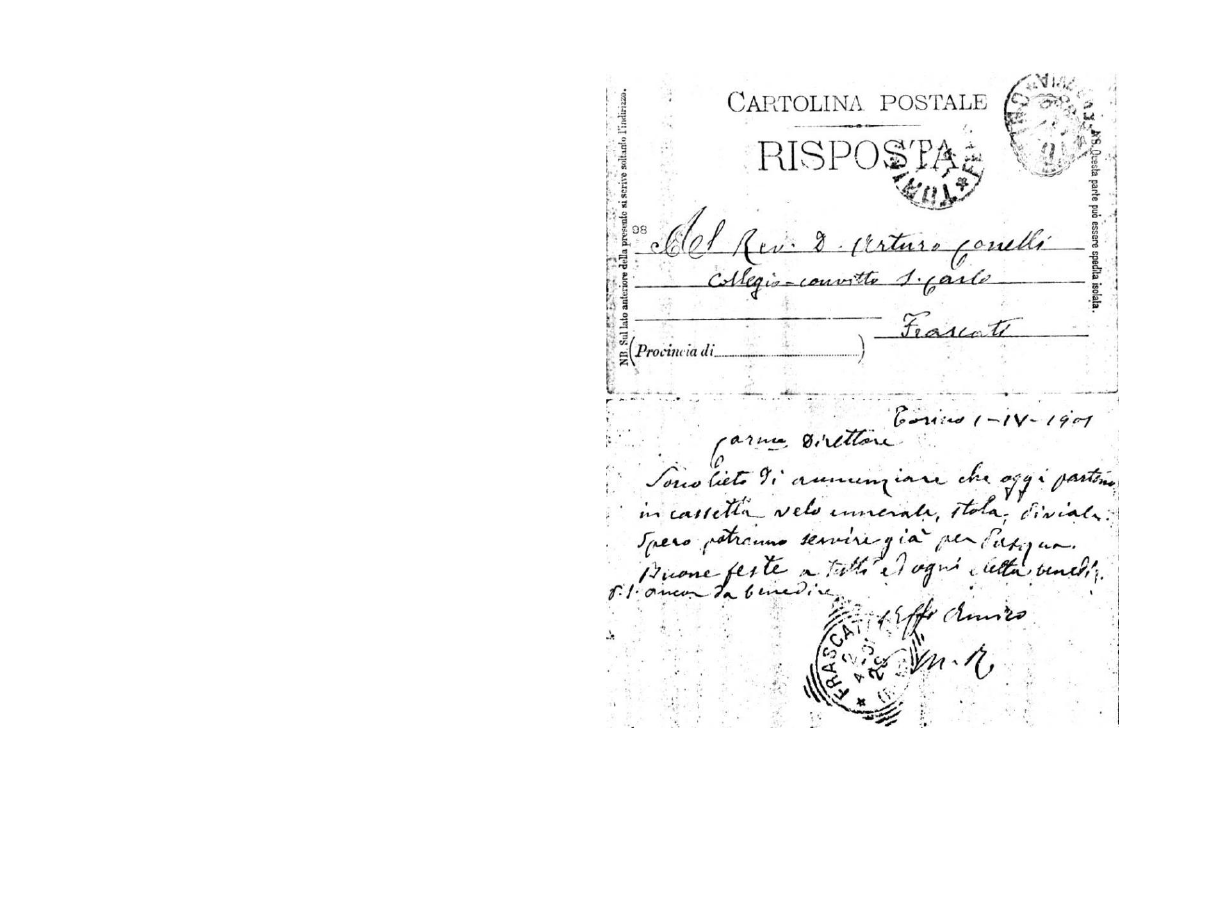 CARTOLINA POSTALE
RISPOSTA
TORINO
NB. Sul lato anteriore della presente si scrive soltanto l'indirizzo.
NB. Questa parte può essere spedita isolata.
98
Al Rev. D. Arturo Conelli
Collegio-convitto S. Carlo
Frascati
(Provincia di)
Torino 1-IV-1901
Carmo Direttore
Sono lieto di annunziare che oggi partono
in cassetta velo umerale, stola, piviale.
Spero potranno servire già per Pasqua.
Buone feste a tutti ed ogni eletta benediz.
d. S. ancor da benedire
Aff. Amico
M. R.
FRASCATI